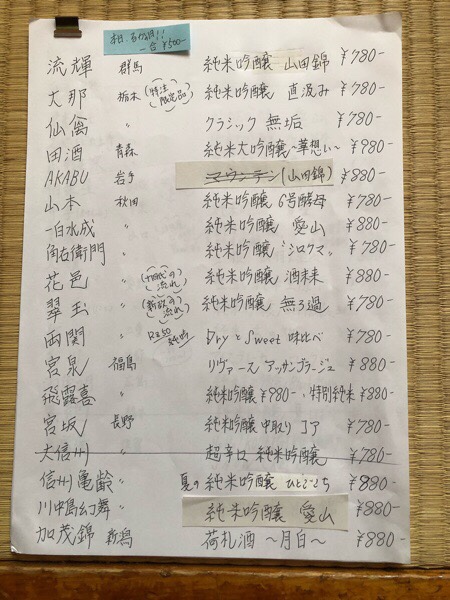 本日、
一合 ¥500-
流輝 群馬 純米吟醸 山田錦 ¥780-
大那 栃木 (特注限定品) 純米吟醸 直汲み ¥780-
仙禽 〃 クラシック 無垢 ¥780-
田酒 青森 純米大吟醸~華想い~ ¥980-
AKABU 岩手 マウンテン (山田錦) ¥880-
山本 秋田 純米吟醸 6号酵母 ¥780-
一白水成 〃 純米吟醸 愛山 ¥880-
角右衛門 〃 純米吟醸 〝シロクマ〟 ¥780-
花邑 〃 (十四代の流れ) 純米吟醸 酒未来 ¥880-
翠玉 〃 (新政の流れ) 純米吟醸 無ろ過 ¥780-
両関 〃 純吟 Dry と Sweet 味比べ ¥780-
宮泉 福島 リヴァース アッサンブラージュ ¥880-
飛露喜 〃 純米吟醸 ¥980-・特別純米 ¥880-
宮坂 長野 純米吟醸 中取り コア ¥780-
大信州 〃 超辛口 純米吟醸 ¥780-
信州亀齢 〃 夏の 純米吟醸 ひとごこち ¥880-
川中島幻舞 〃 純米吟醸 愛山 ¥880-
加茂錦 新潟 荷札酒 ~月白~ ¥880-